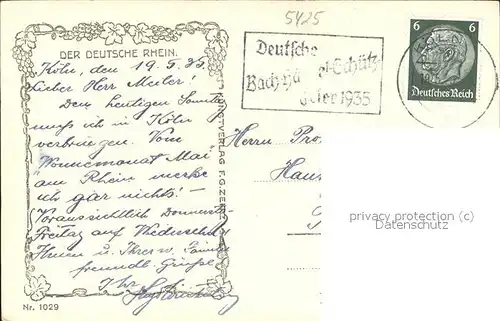 5425
DER DEUTSCHE RHEIN.
Köln, den 19. 5. 35.
Lieber Herr Meiler!
Den heutigen Sonntag
muss ich in Köln
verbringen. Vom
Wonnemonat Mai
am Rhein merke
ich gar nichts! –
Voraussichtlich Donnerst
Freitag auf Wiedersehen
Ihnen u. Ihrer w. Familie
freundl. Grüße
Ihr
Nr. 1029
KUNSTVERLAG F.G.ZE
Deutsche
Bach-Hä el-Schütz-
Feier 1935
6 6
Deutsches Reich
Herrn Pro
Hau
privacy protection (c)
Datenschutz